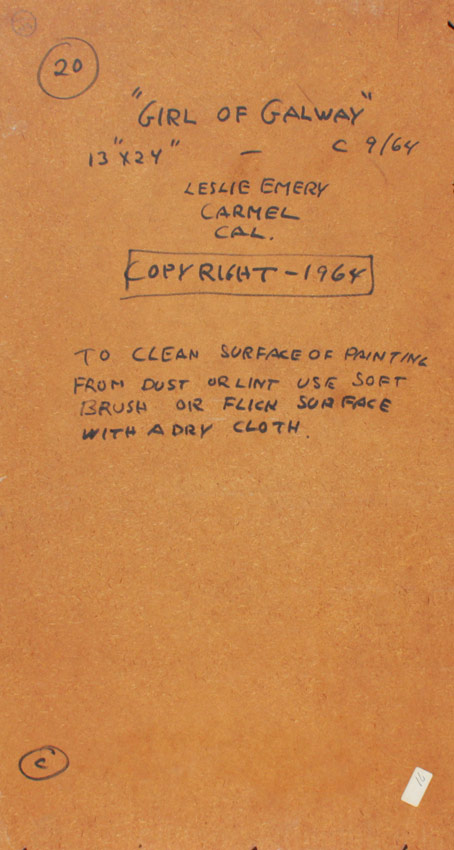 20
"GIRL OF GALWAY"
13"X24" — C 9/64
LESLIE EMERY
CARMEL
CAL.
COPYRIGHT - 1964
TO CLEAN SURFACE OF PAINTING
FROM DUST OR LINT USE SOFT
BRUSH OR FLICK SURFACE
WITH A DRY CLOTH.
C